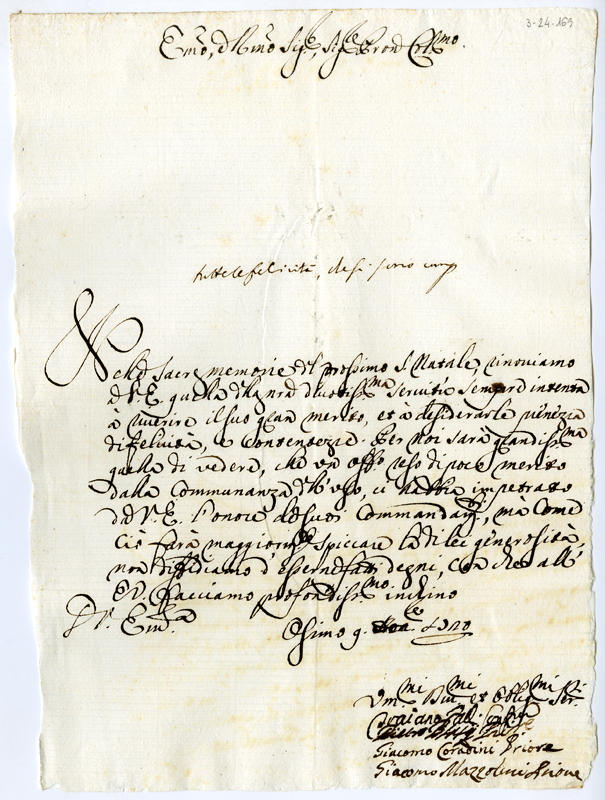 3-24-169
Emo, e Rmo Sig.re, Sig.re Pron Coll.mo
tutte le felicità, che si
Nelle Sacre memorie del prossimo S. Natale rinoviamo
à V. E. quella della nra divotiss.ma servitù sempre intenta
à riverire il suo gran merito, et a desiderarle pienezza
di felicità, e contentezze. Per noi sarà grandiss.ma
quella di vedere, che un offo reso di poco merito
dalla Communanza dell'uso, ci habbia impetrato
da V. E. l'onore de suoi Commandam.ti, ma come
ciò farà maggiorm.te spiccare la di lei generosità,
non diffidiamo d'esserne fatti degni, con che all'
E. V. facciamo profondiss.mo inchino
D. V. Em.a
Osimo 9.
Um.mi Div.mi et Obblig.mi Ser.
Giacomo Corradini Priore
Giacomo Mazzoleni Priore